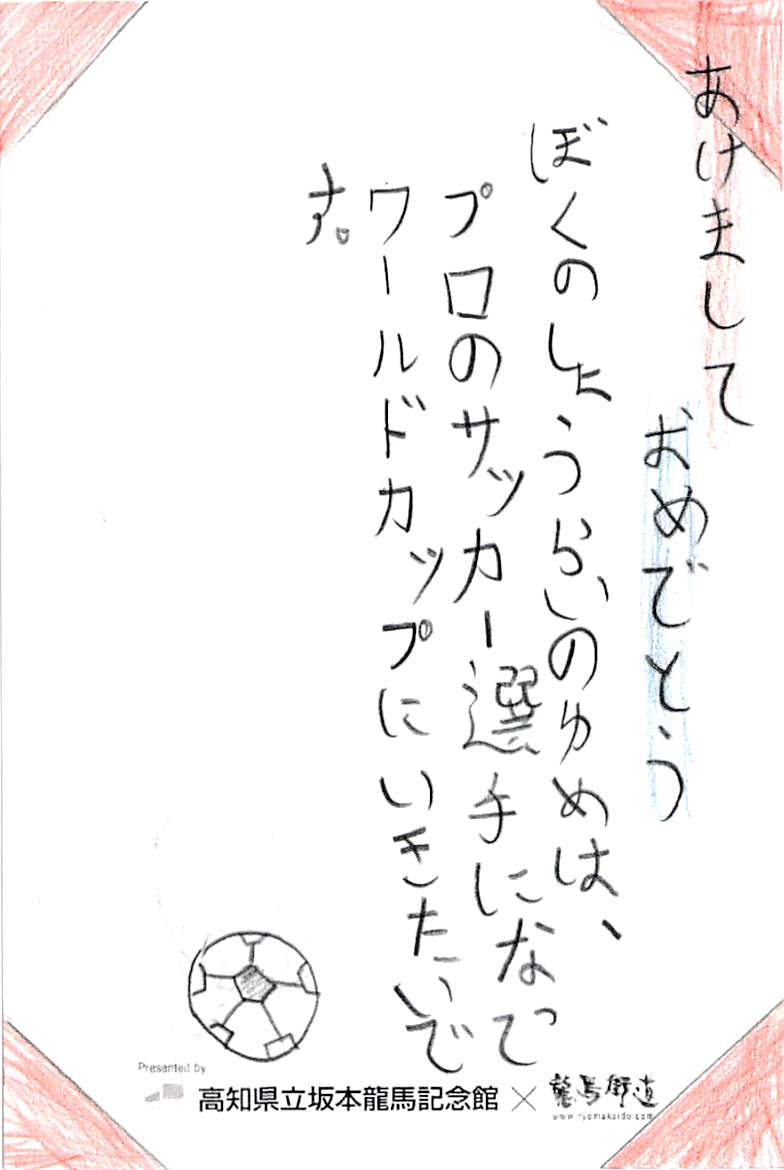 あけまして
おめでとう
ぼくのしょうらいのゆめは、
プロのサッカー選手になって
ワールドカップにいきたいで
す。
Presented by
高知県立坂本龍馬記念館×龍馬街道
www.ryomakaido.com